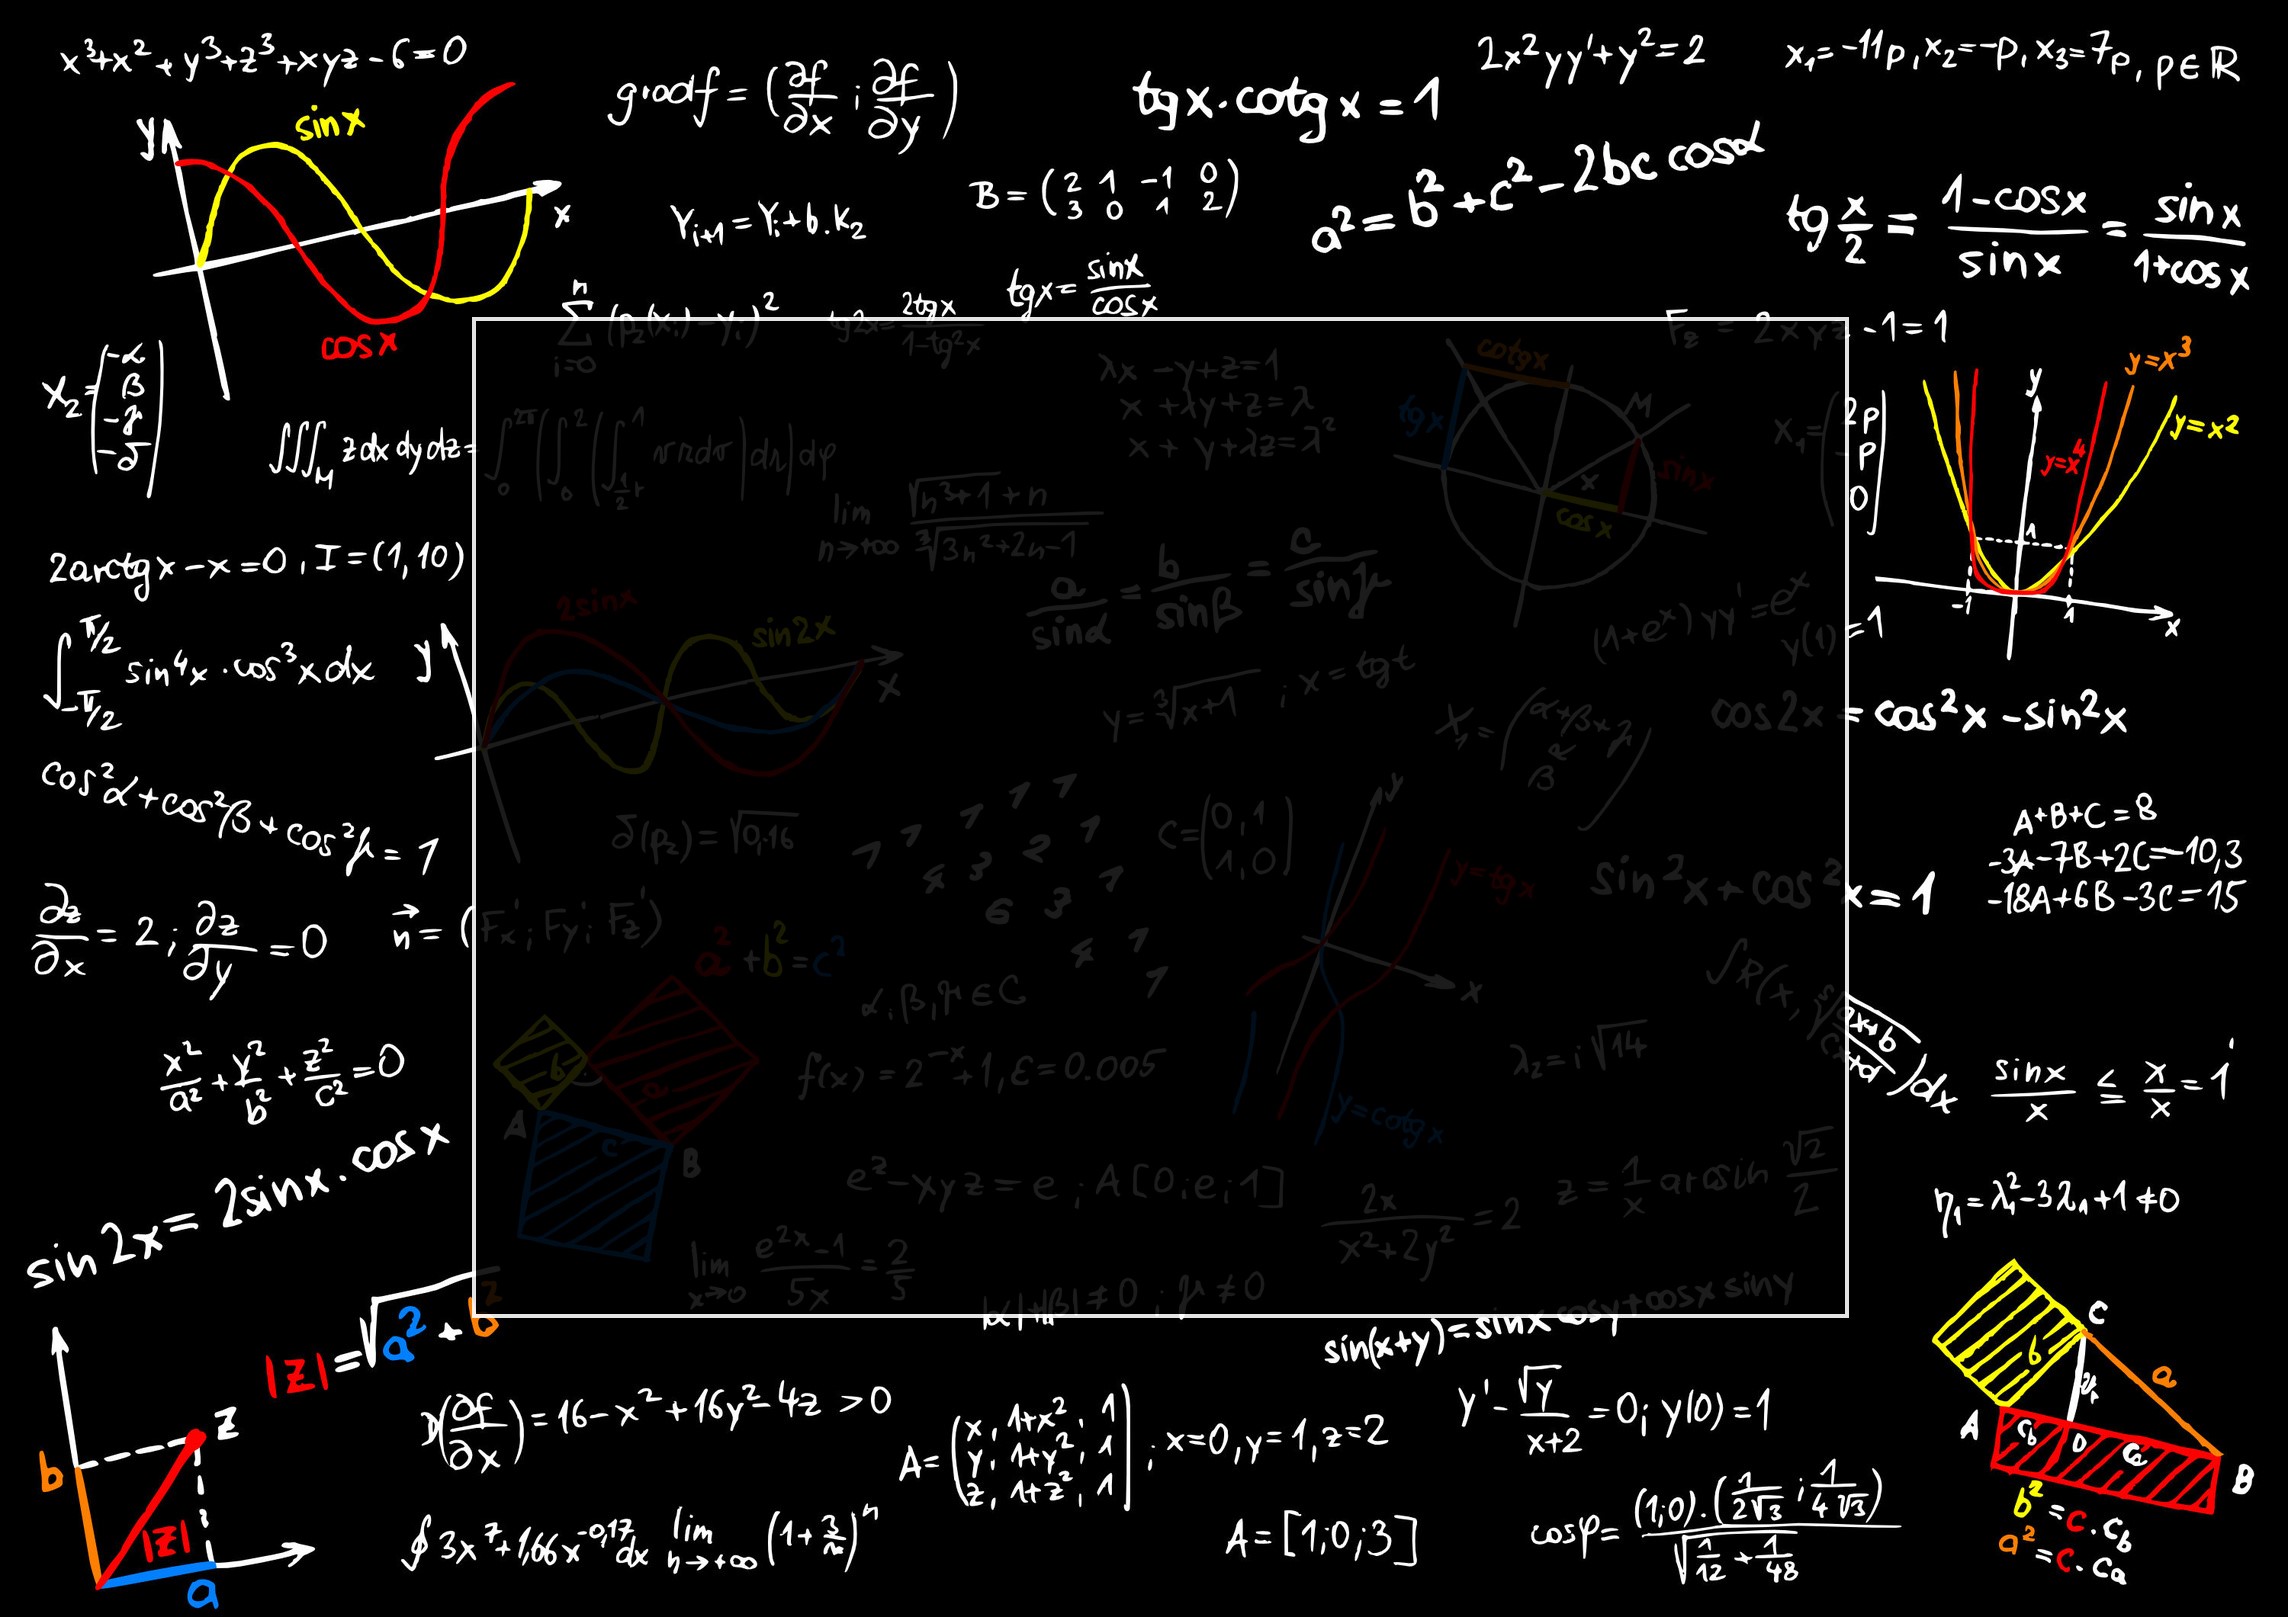 x³+x²+y³+z³+xyz-6=0
gradf = (∂f/∂x ; ∂f/∂y)
tgx·cotgx=1
2x²yy'+y²=2
x₁=-11p, x₂=-p, x₃=7p, p∈ℝ
y
sinx
x
cosx
Yᵢ₊₁=Yᵢ+b.K₂
B=(2 1 -1 0
3 0 1 2)
a²=b²+c²-2bc cosα
tg x/2 = (1-cosx)/sinx = sinx/(1+cosx)
tgx = sinx/cosx
n
∑ (p₂(xᵢ)-yᵢ)²
i=0
tg2x = 2tgx/(1-tg²x)
F₂ = 2xyz-1=1
X₂=(-α
β
-γ
-δ)
λx-y+z=1
x+λy+z=λ
x+y+λz=λ²
cotgx
tgx
M
sinx
x
cosx
X₁=(2p
-p
0)
y
y=x³
y=x²
y=x⁴
1
-1
1
x
∫∫∫M zdxdydz=
lim n→+∞ (√(n³+1)+n)/∛(3n²+2n-1)
2arctgx-x=0, I=(1,10)
a/sinα = b/sinβ = c/sinγ
(1+eˣ)yy'=eˣ
y(1)=1
∫ -π/2 π/2 sin⁴x·cos³xdx
y
2sinx
sin2x
x
y=∛(x+1) ; x=tgt
X₁=(α+β+γ
α
β)
cos2x=cos²x-sin²x
cos²α+cos²β+cos²γ=1
δ(p₂)=√0,16
1 1 1 1
1 4 3 2 1
6 3 1
4 1
1
C=(0,1
1,0)
y
y=tgx
x
y=cotgx
sin²x+cos²x=1
A+B+C=8
-3A-7B+2C=-10,3
-18A+6B-3C=15
∂z/∂x=2; ∂z/∂y=0
n⃗=(Fx'; Fy'; Fz')
a²+b²=c²
b
a
A
c
B
α,β,γ∈C
f(x)=2⁻ˣ+1, ε=0.005
λ₂=i√14
x²/a²+y²/b²+z²/c²=0
sinx/x ≤ x/x=1
sin2x=2sinx·cosx
eᶻ-xyz=e; A[0;e;1]
2x/(x²+2y²)=2
z=1/x arcsin √2/2
η₁=λ₁²-3λ₁+1≠0
lim x→0 (e²ˣ-1)/5x=2/5
|α|+|β|≠0 ; γ≠0
sin(x+y)=sinx cosy+cosx siny
|z|=√(a²+b²)
z
b
|z|
a
D(∂f/∂x)=16-x²+16y²-4z>0
A=(x, 1+x², 1
y, 1+y², 1
z, 1+z², 1) ; x=0, y=1, z=2
y'-√y/(x+2)=0; y(0)=1
C
b
a
A
c_b
D
c_a
B
b²=c·c_b
a²=c·c_a
∮3x⁷+1,66x⁻⁰,¹⁷dx
lim n→+∞ (1+3/n)ⁿ
A=[1;0;3]
cosφ=(1;0).(1/2√3 ; 1/4√3)/√(1/12+1/48)